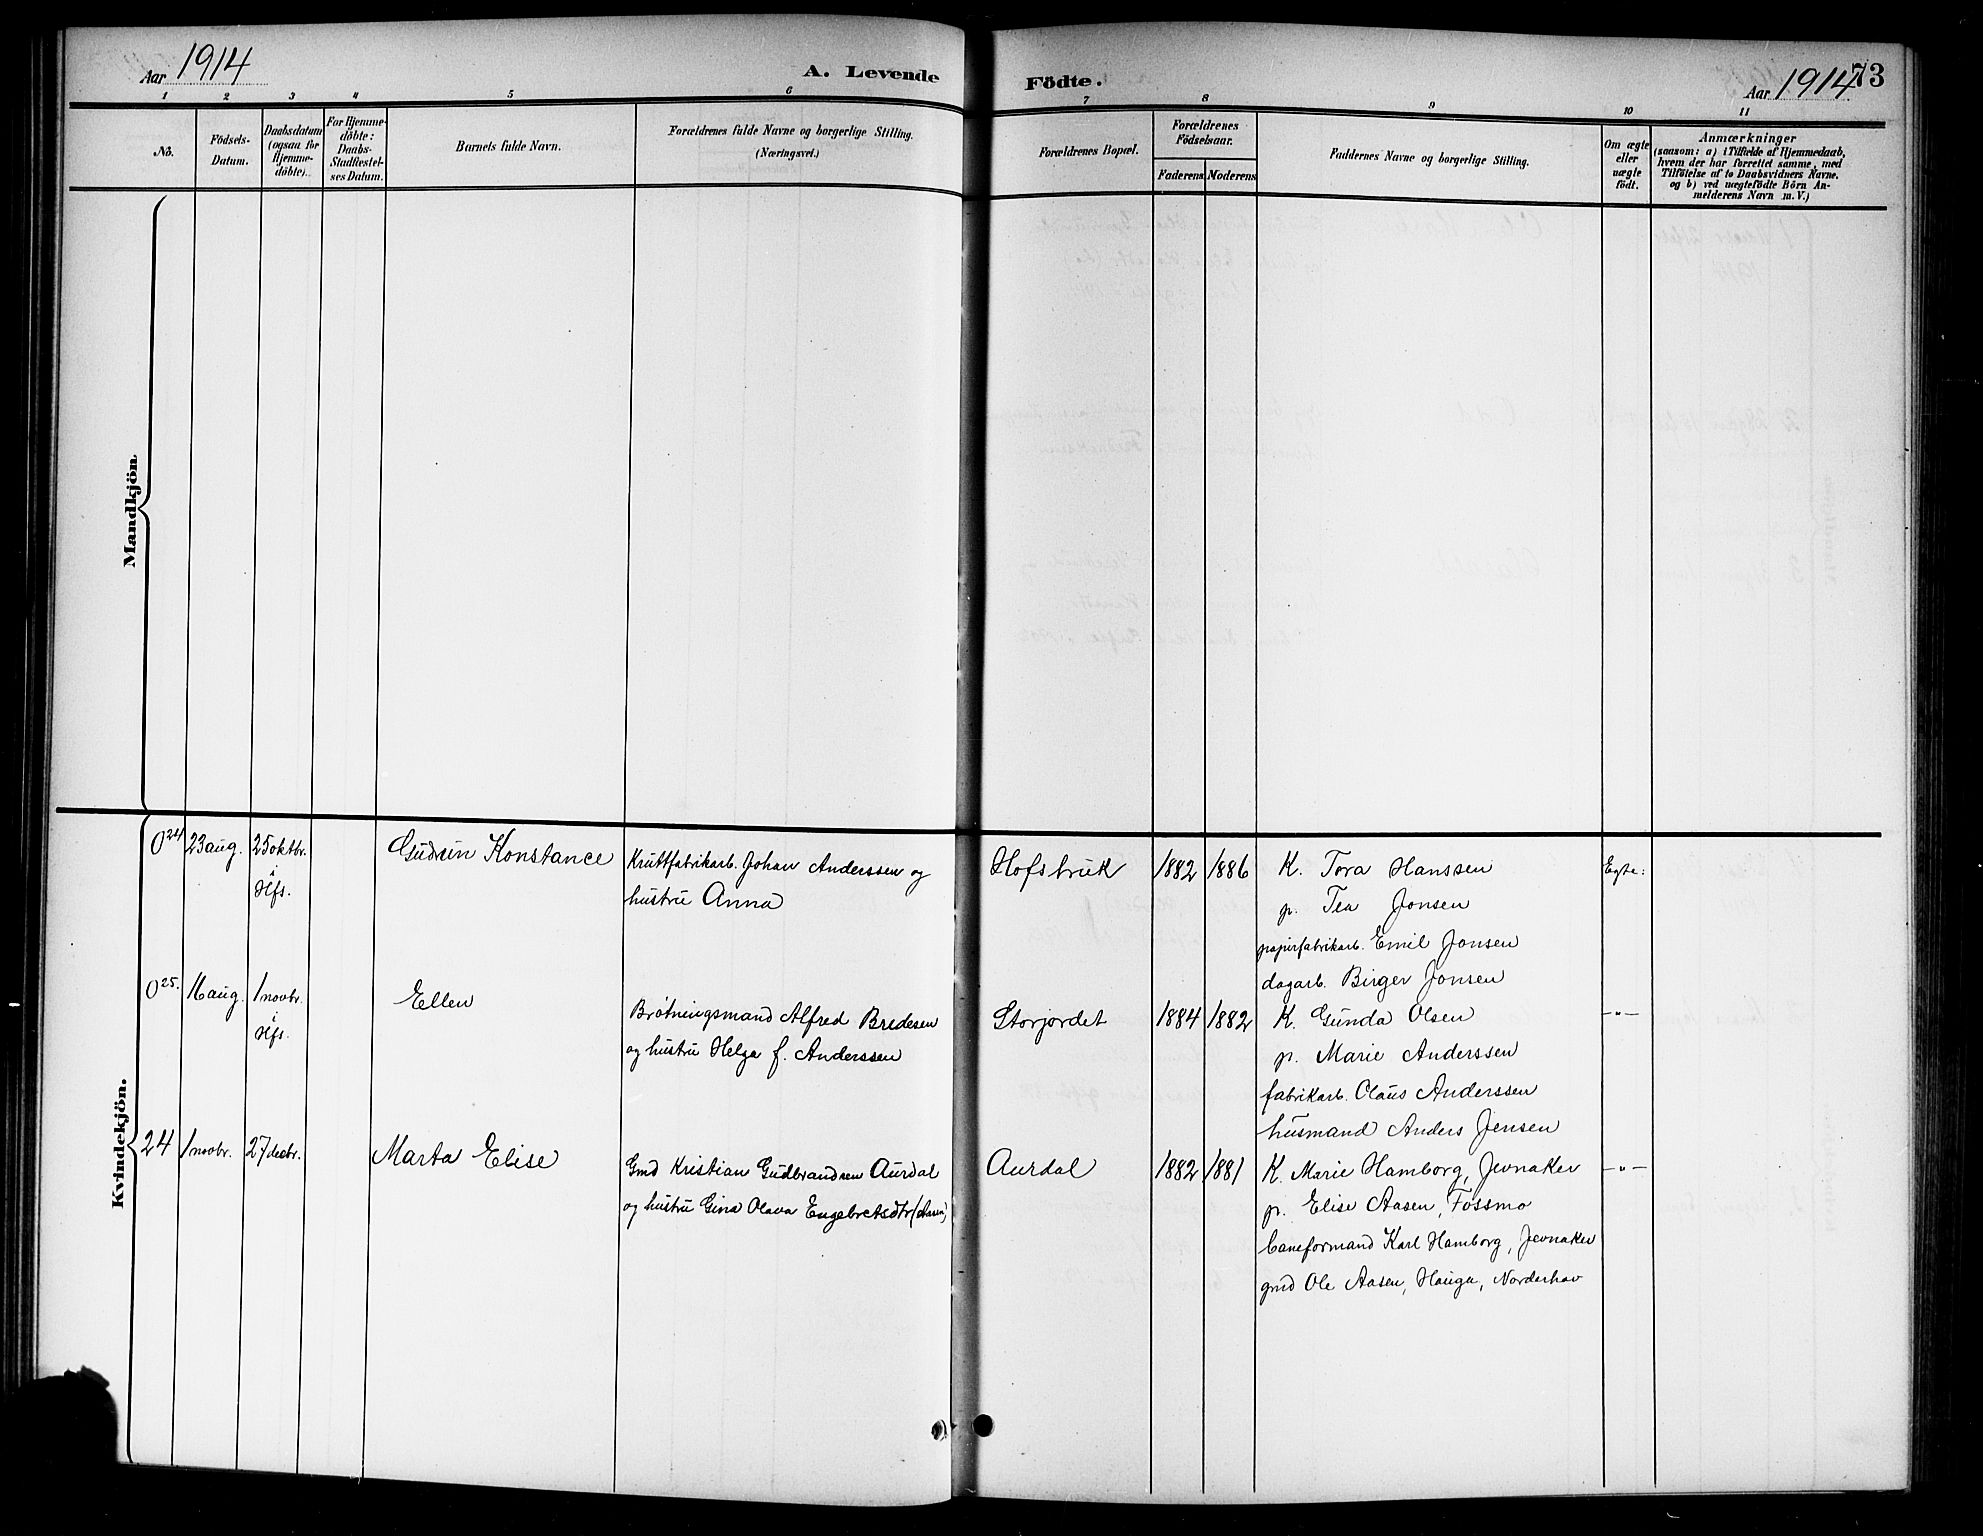 Aar 1914
A. Levende
Födte.
Aar 1914
73
1 2 3 4 5 6 7 8 9 10 11
No.
Födsels-
Datum.
Daabsdatum
(ogsaa for
Hjemme-
döbte).
For Hjemme-
döbte:
Daabs-
Stadfæstel-
ses Datum.
Barnets fulde Navn.
Forældrenes fulde Navne og borgerlige Stilling.
(Næringsvei.)
Forældrenes Bopæl.
Forældrenes
Födselsaar.
Faderens
Moderens
Faddernes Navne og borgerlige Stilling.
Om ægte
eller
uægte
födt.
Anmærkninger
(saasom: a) i Tilfælde af Hjemmedaab,
hvem der har forrettet samme, med
Tilföielse af to Daabsvidners Navne.
og b) ved uægtefödte Börn An-
melderens Navn m.V.)
Mandkjön
Kvindekjön.
0 24
23 aug.
25 oktbr.
i
Hfs.
Gudrun Konstance
Kruttfabrikarb. Johan Anderssen og
hustru Anna
Hofsbruk
1882
1886
K. Tora Hanssen
p. Tea Jonsen
papirfabrikarb. Emil Jonsen
dagarb. Birger Jonsen
Egte:
0 25.
16 aug.
1 novbr.
i
Hfs.
Ellen
Brøtningsmand Alfred Bredesen
og hustru Helga f. Anderssen
Storjordet
1884
1882
K. Gunda Olsen
p. Marie Anderssen
fabrikarb. Olaus Anderssen
husmand Anders Jensen
-"-
24
1 novbr.
27 decbr.
Marta Elise
Gmd Kristian Gudbrandsen Aurdal
og hustru Gina Olava Engebretsdtr (Aasen)
Aurdal
1882
1881
K. Marie Hamborg, Jevnaker
p. Elise Aasen, Fossmo
baneformand Karl Hamborg, Jevnaker
gmd Ole Aasen, Hauga, Norderhov
-"-